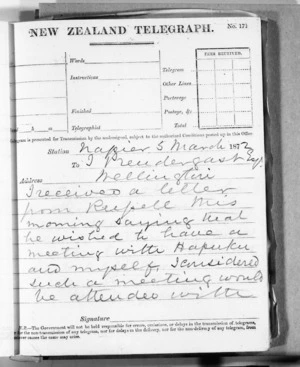 NEW ZEALAND TELEGRAPH.
No. 172
Words
FEES RECEIVED.
Instructions
Telegram
Other Lines
Porterage
Finished
Postage, &c.
Telegraphist
Total
is presented for Transmission by the undersigned, subject to the authorised Conditions posted up in this Office
Station Napier 5 March 1872
To J Prendergast Esq
Address Wellington
I received a letter
from Russell this
morning saying that
he wished to have a
meeting with Hapuku
and myself, I considered
such a meeting would
be attended with
Signature
N.B.—The Government will not be held responsible for errors, omissions, or delays in the transmission of telegrams,
or for the non-transmission of any telegram, nor for delays in the delivery, nor for the non-delivery of any telegram, from
whatever cause the same may arise.